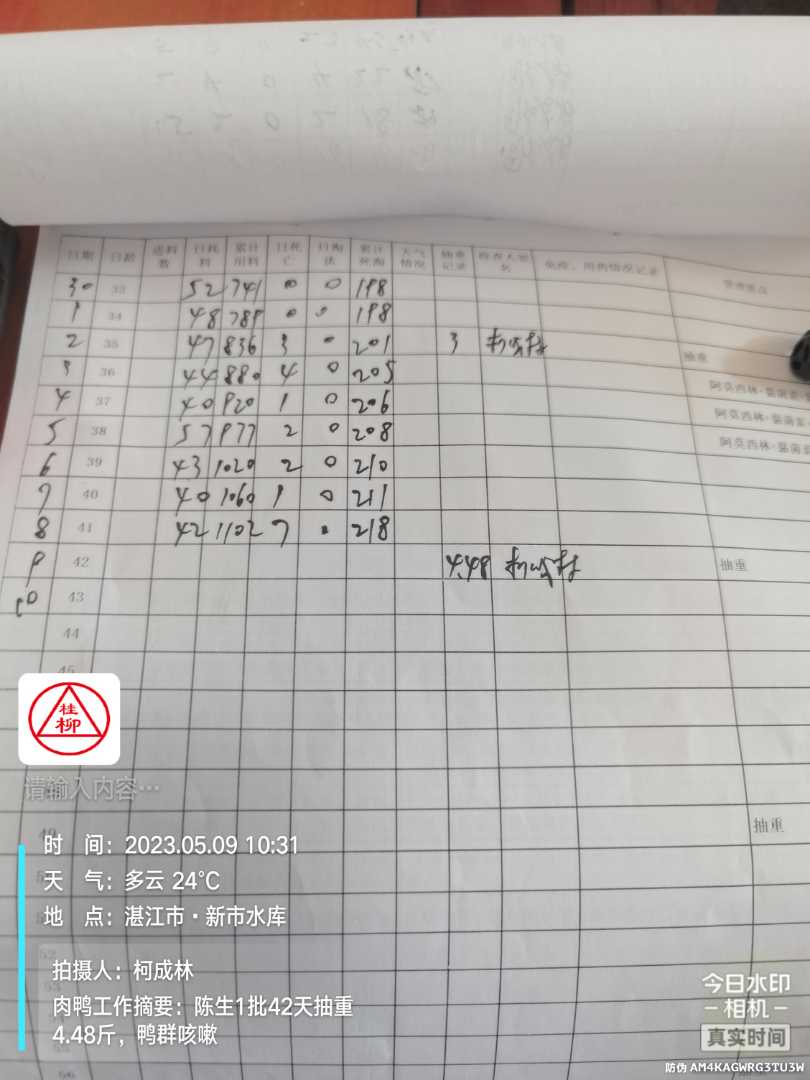 日期 日龄 进料数 日耗料 累计用料 日死亡 日淘汰 累计死淘 天气情况 抽重记录 检查人签名 免疫、用药情况记录 管理要点
30 33 52 741 0 0 198
1 34 48 789 0 0 198
2 35 47 836 3 0 201 3 抽重
3 36 44 880 4 0 205 阿莫西林·
4 37 40 920 1 0 206 阿莫西林·
5 38 57 977 2 0 208 阿莫西林·
6 39 43 1020 2 0 210
7 40 40 1060 1 0 211
8 41 42 1102 7 0 218
9 42 4.48 抽重
10 43
44
45
桂
柳
请输入内容…
49 抽重
时 间：2023.05.09 10:31
天 气：多云 24℃
地 点：湛江市·新市水库
52
拍摄人：柯成林
肉鸭工作摘要：陈生1批42天抽重
4.48斤，鸭群咳嗽
56
今日水印
相机
真实时间
防伪 AM4KAGWRG3TU3W